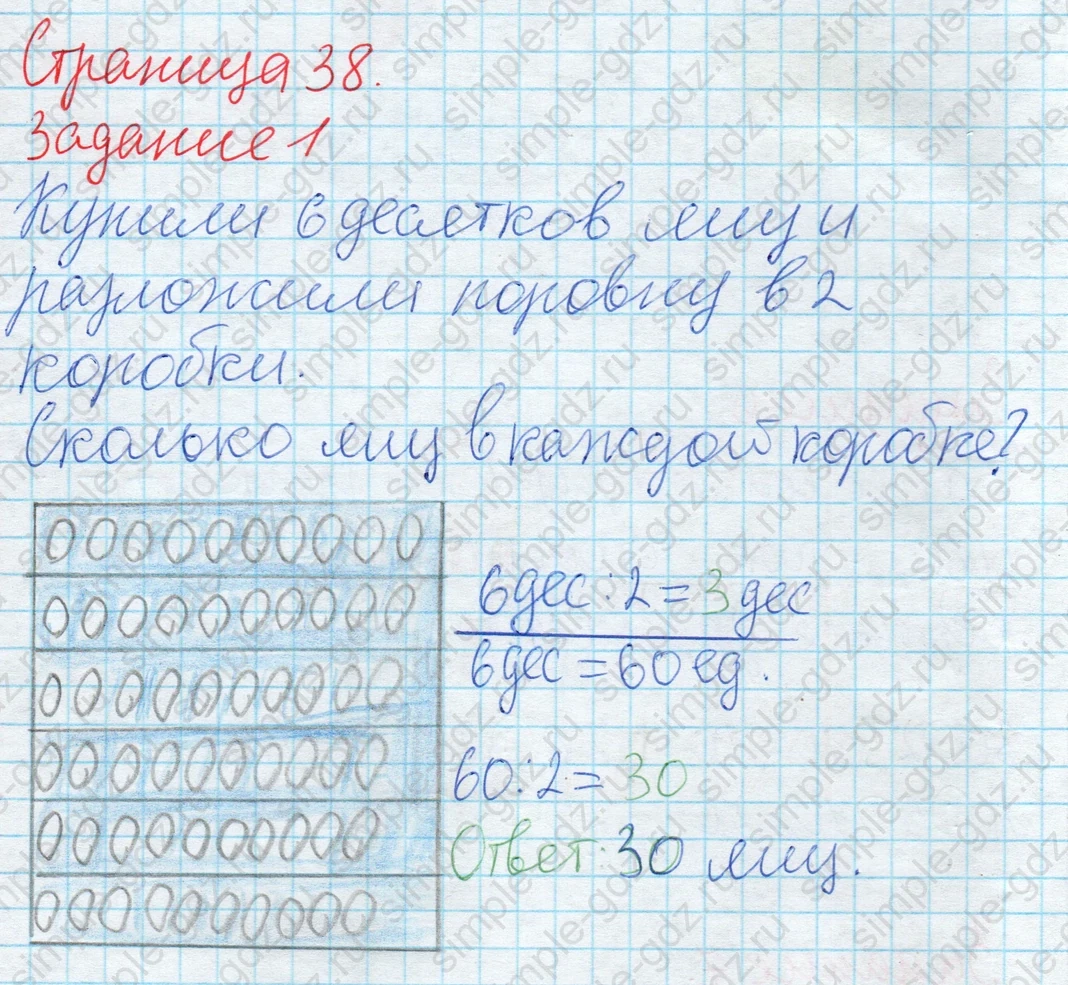 Страница 38.
Задание 1
Купили 6 десятков яиц и
разложили поровну в 2
коробки.
Сколько яиц в каждой коробке?
6 дес : 2 = 3 дес
6 дес = 60 ед.
60 : 2 = 30
Ответ: 30 яиц.
simple-gdz.ru